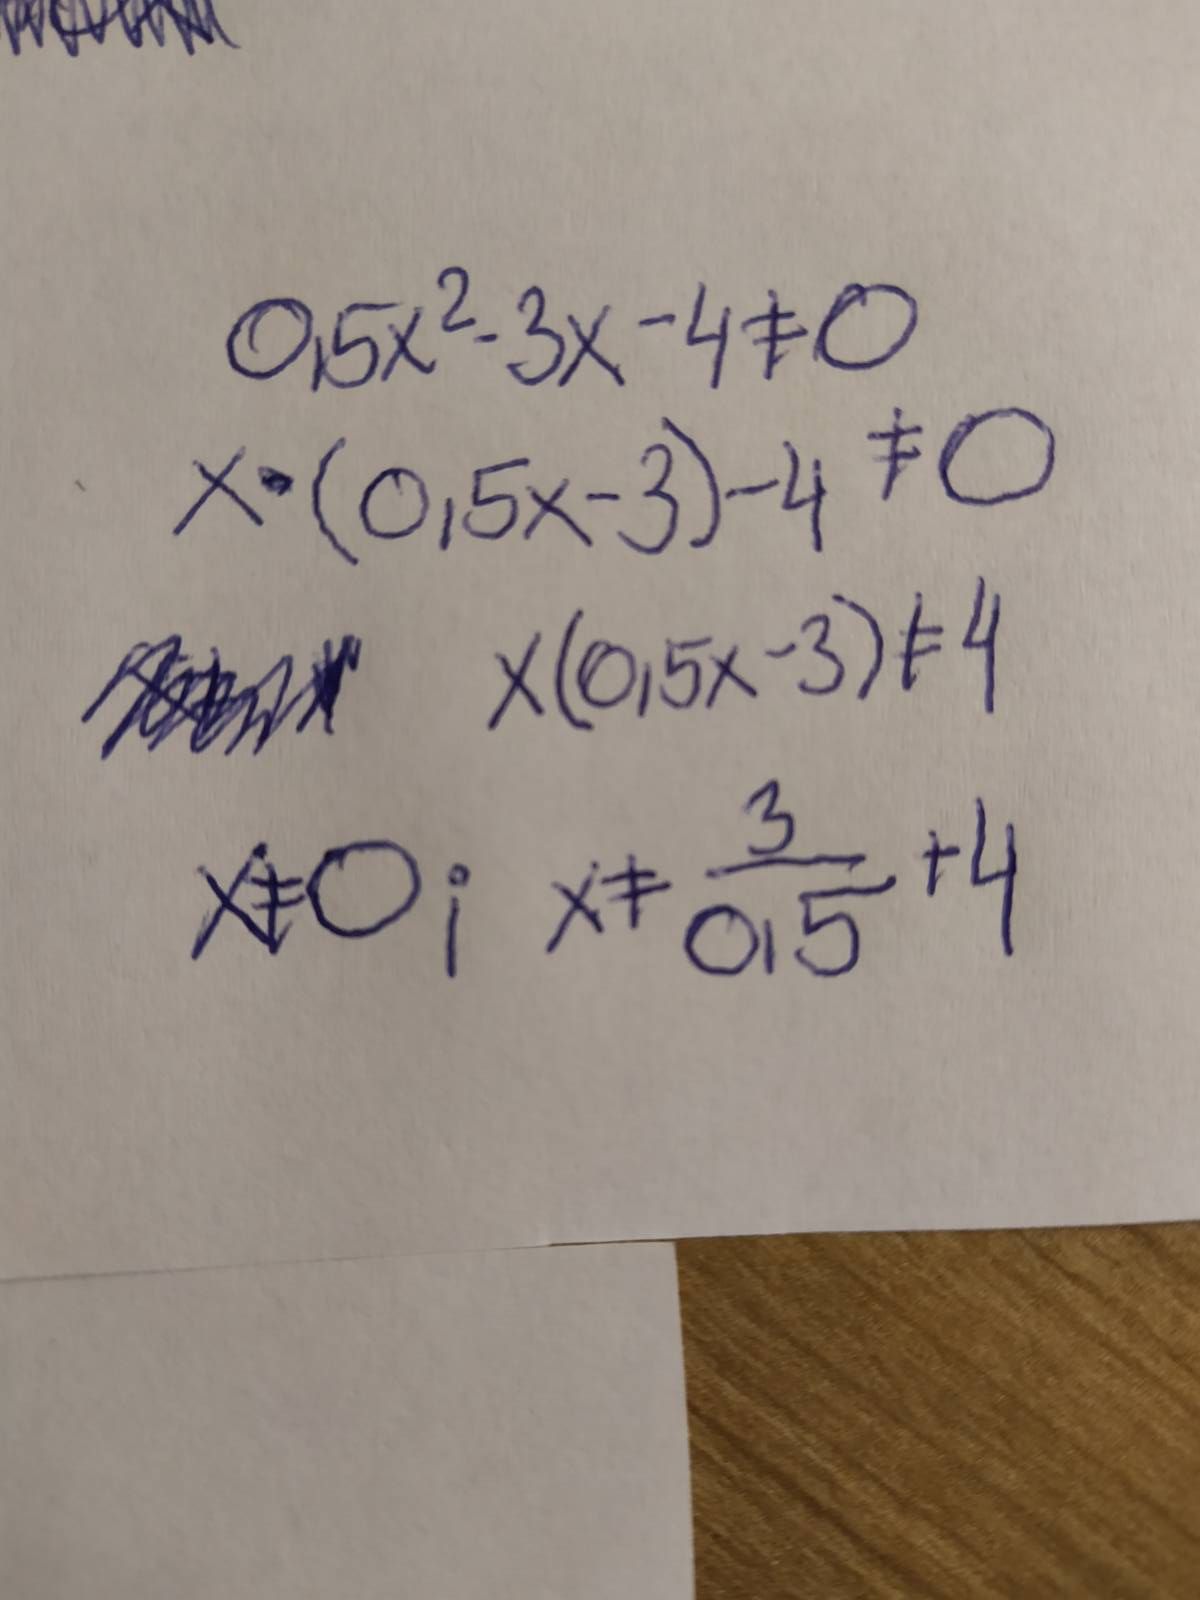 0,5x²-3x-4≠0
x·(0,5x-3)-4≠0
x(0,5x-3)≠4
x≠0; x≠3/0,5+4